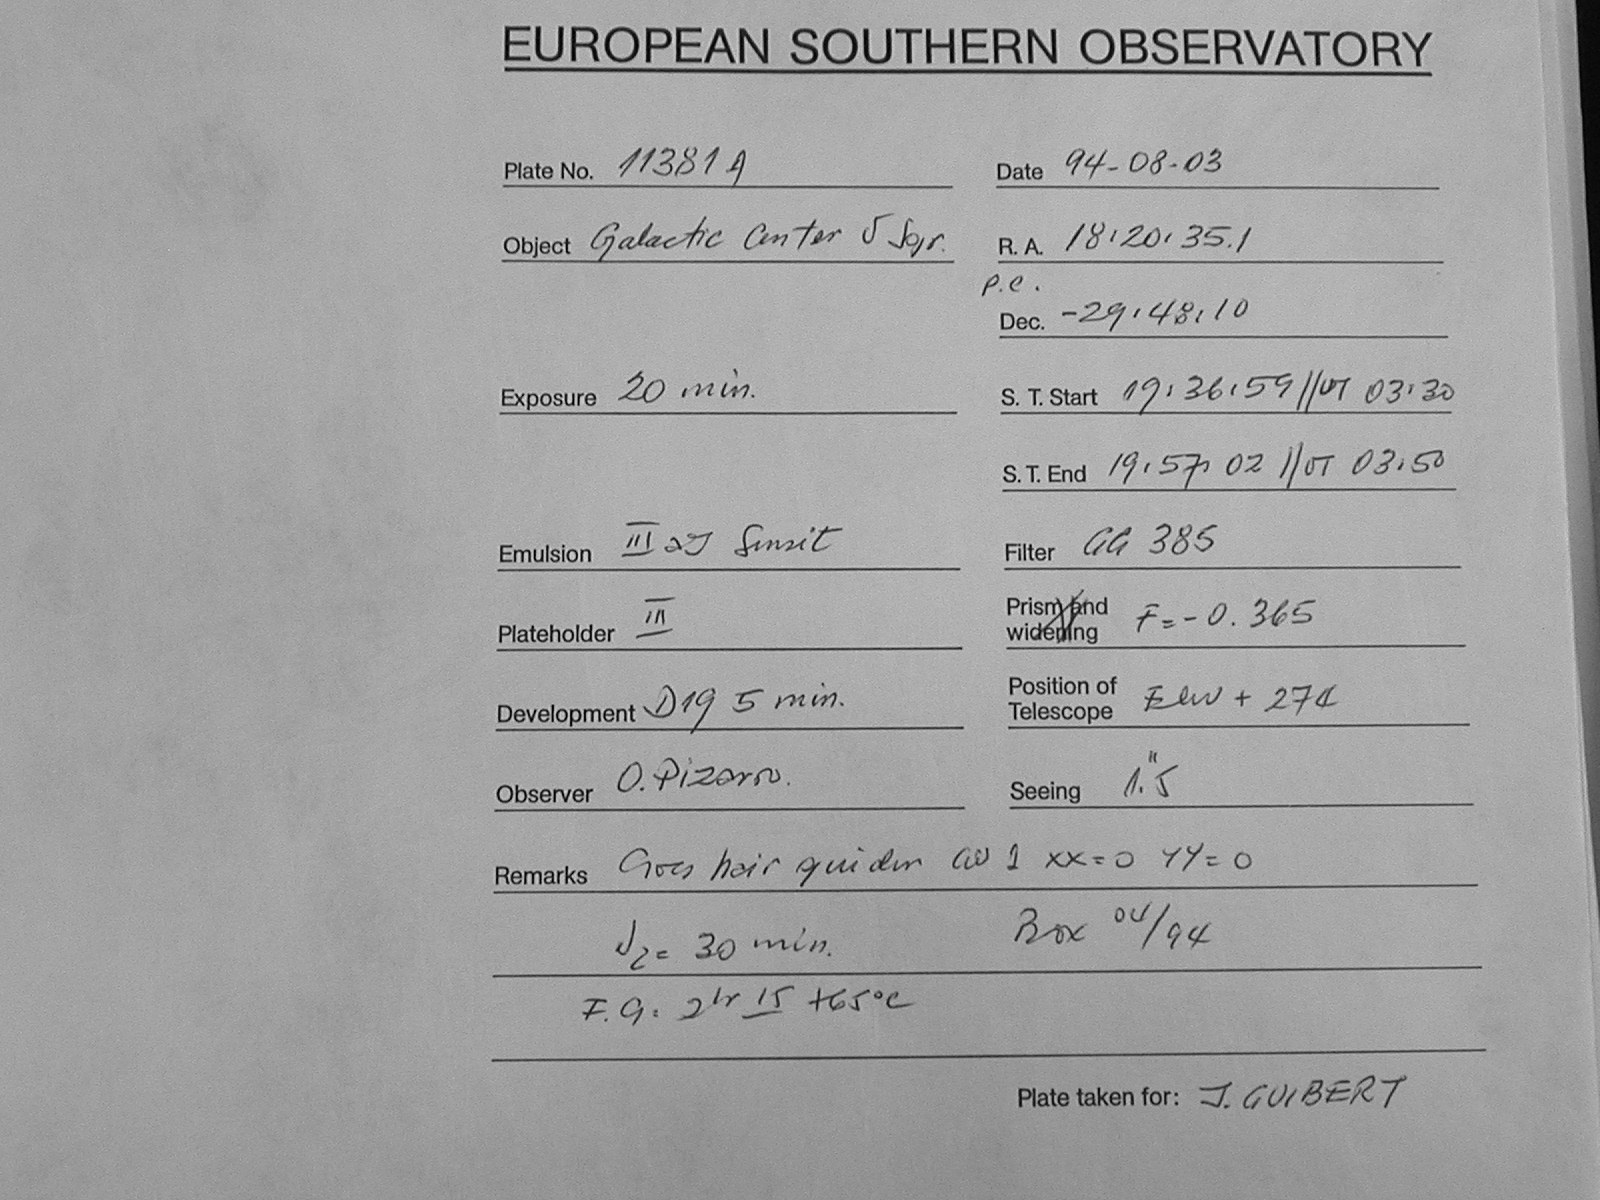 EUROPEAN SOUTHERN OBSERVATORY
Plate No. 11381 A Date 94-08-03
Object Galactic Center J Sgr. R. A. 18:20:35.1
p.e.
Dec. -29:48:10
Exposure 20 min. S. T. Start 19:36:59 // UT 03:30
S. T. End 19:57:02 // UT 03:50
Emulsion III aJ Sensit Filter GG 385
Plateholder III Prism and widening F = -0.365
Development D19 5 min. Position of Telescope E/W + 27
Observer O. Pizarro. Seeing 1."5
Remarks hair 1 XX=0 YY=0
= 30 min. Box 04/94
F.G. 2hr 15 +65°C
Plate taken for: J. GUIBERT